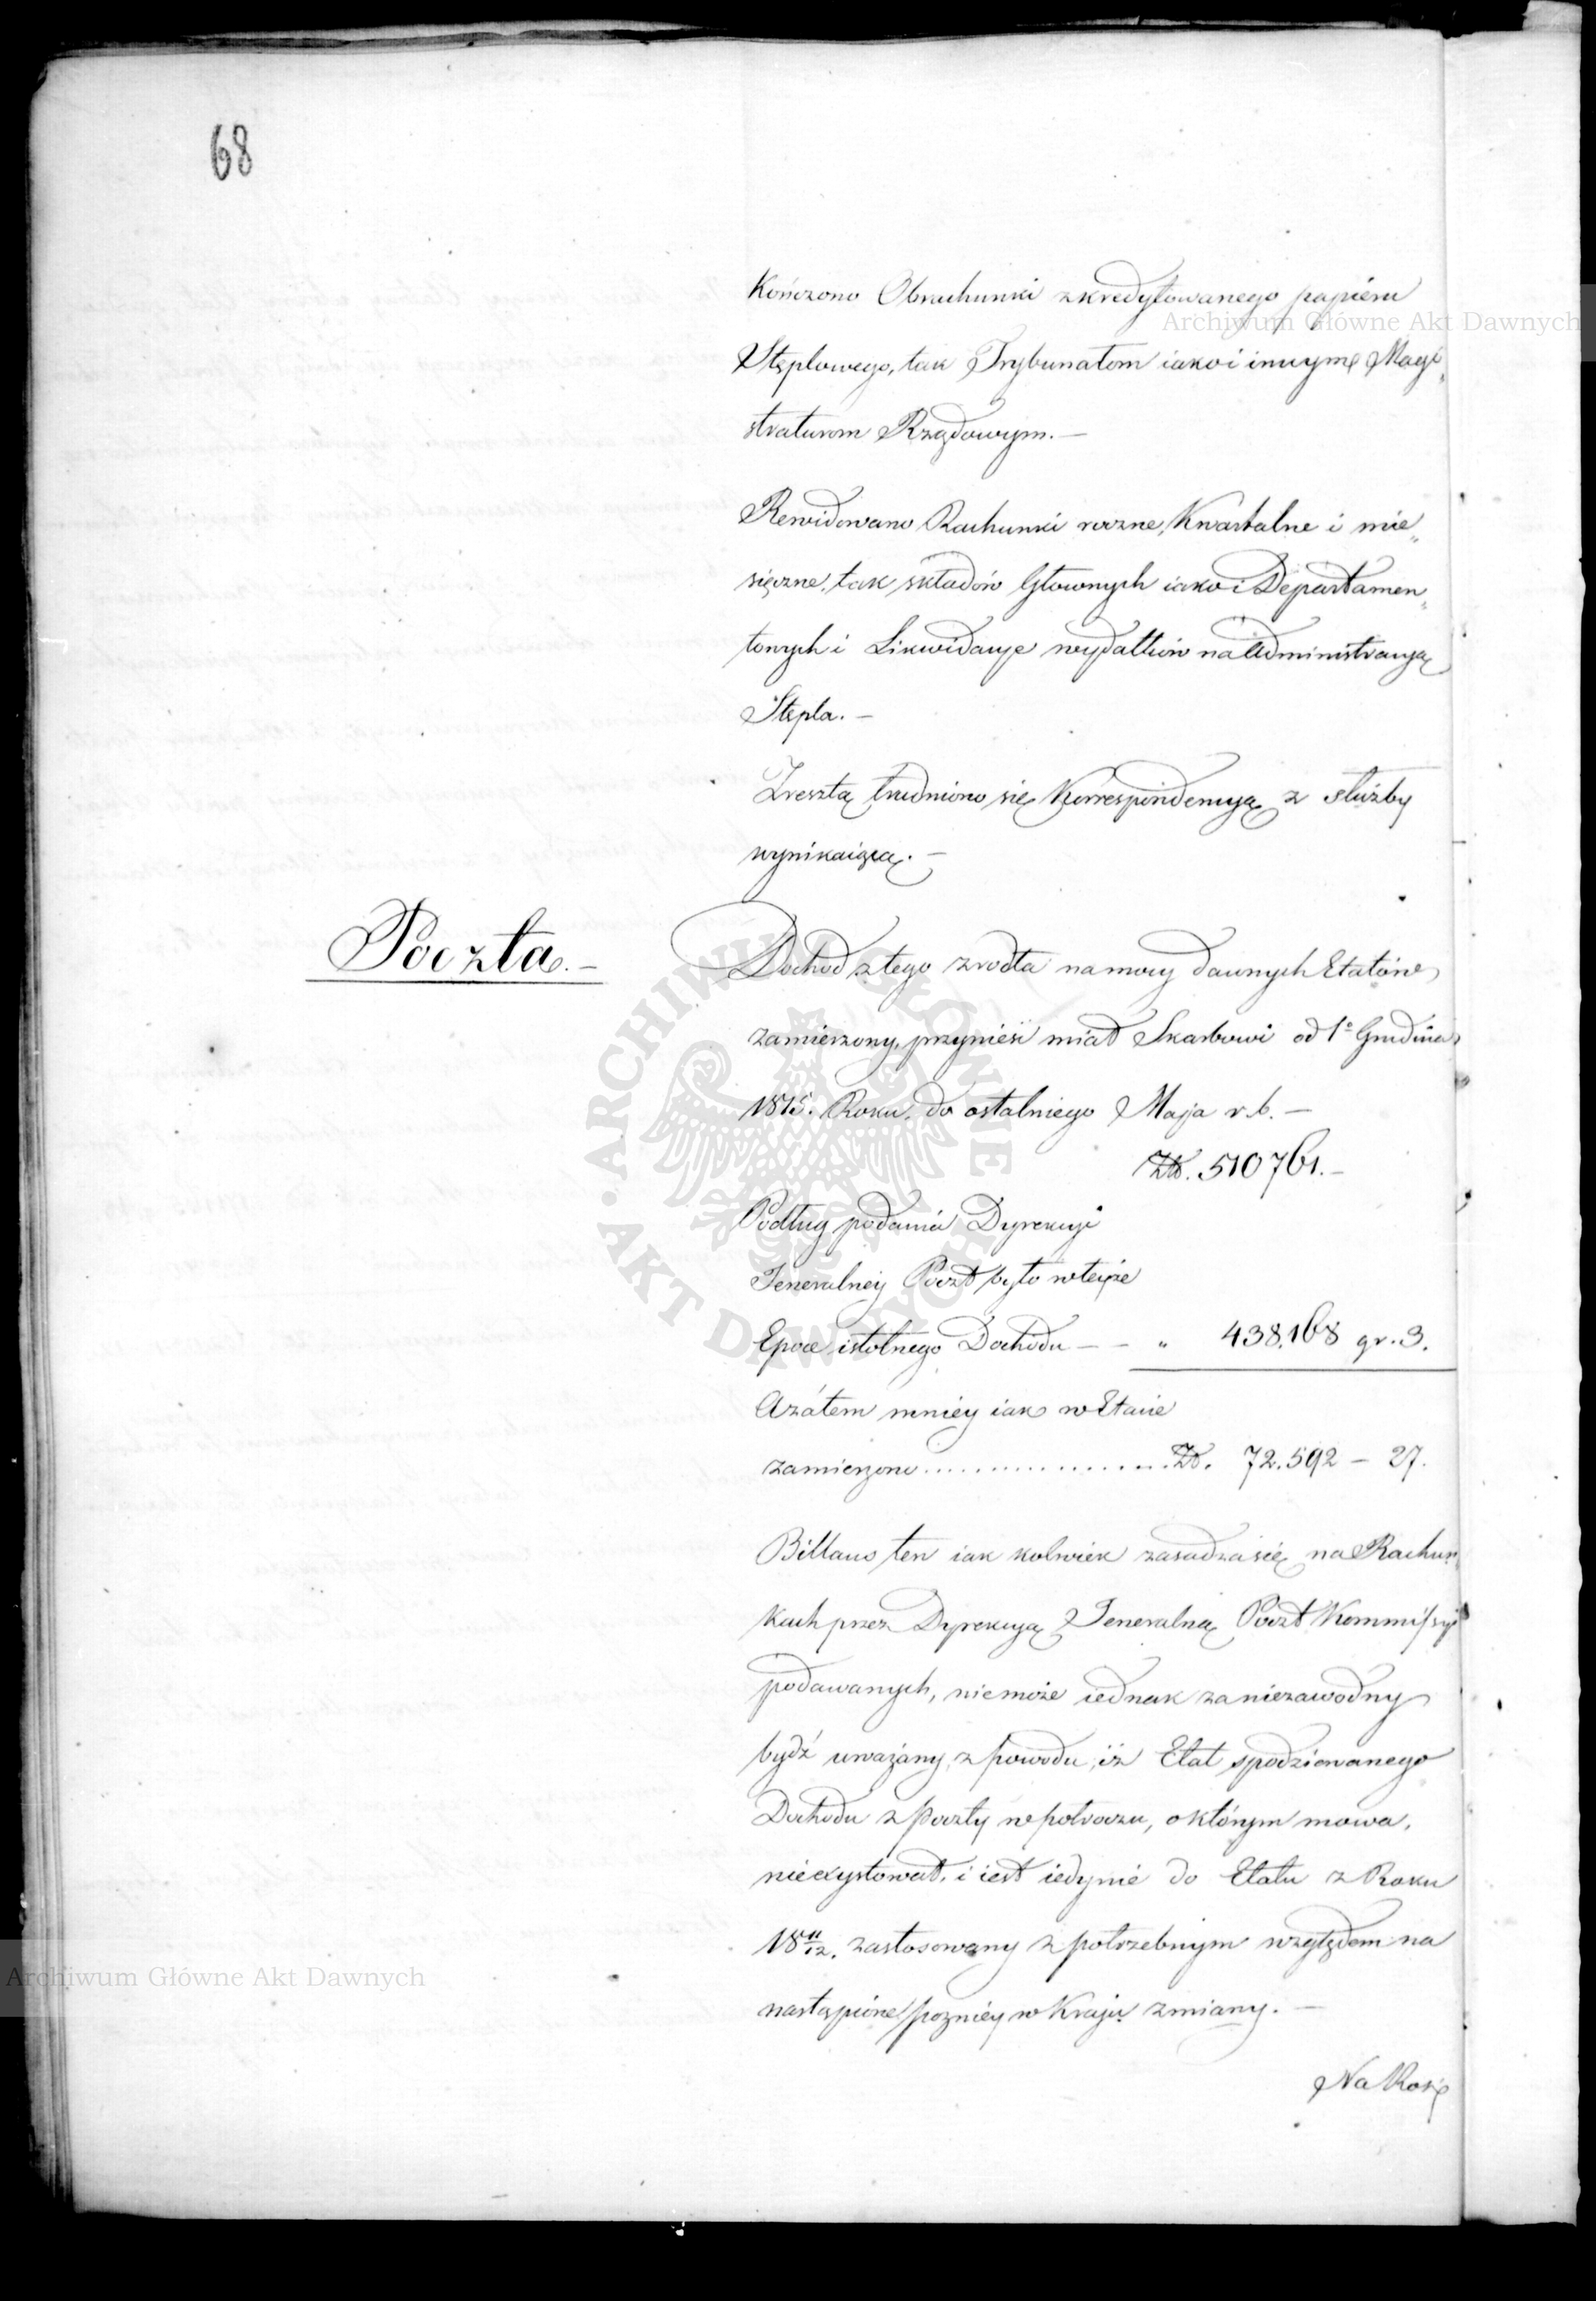 68
Archiwum Główne Akt Dawnych
Kończono Obrachunki zkredytowanego papieru
Stęplowego, tak Trybunałom iako i innym Magi„
straturom Rządowym. —
Rewidowano Rachunki roczne, Kwartalne i mie„
sięczne, tak składów Głownych iako i Departamen„
towych i Likwidacye wydatków na Administracyą
Stępla. —
Zresztą trudniono się Korrespondencyą z służby
wynikaiącą. —
Poczta. —
Dochod z tego zrodła na mocy dawnych Etatów
zamierzony, przynieść miał Skarbowi od 1° Grudnia
1815. Roku, do ostatniego Maja r. b. —
Zł. 510761. —
Podług podania Dyrekcyi
Jeneralney Poczt było w teyże
Epoce istotnego Dochodu — — „ 438.168 gr. 3.
A zátem mniey iak w Etacie
zamierzono .................. Zł. 72.592 — 27.
Billans ten iak kolwiek zasadza się na Rachun„
kach przez Dyrekcyą Jeneralną Poczt Kommissyi
podawanych, nie może iednak za niezawodny
bydź uważany, z powodu, iż Etat spodziewanego
Dochodu z Poczty w połroczu, o którym mowa,
nieexystował, i iest iedynie do Etatu z Roku
18 11/12. zastosowany z potrzebnym względem na
nastąpione pozniey w Kraju zmiany. —
Na Rosię
ARCHIWUM GŁÓWNE • AKT DAWNYCH •
Archiwum Główne Akt Dawnych